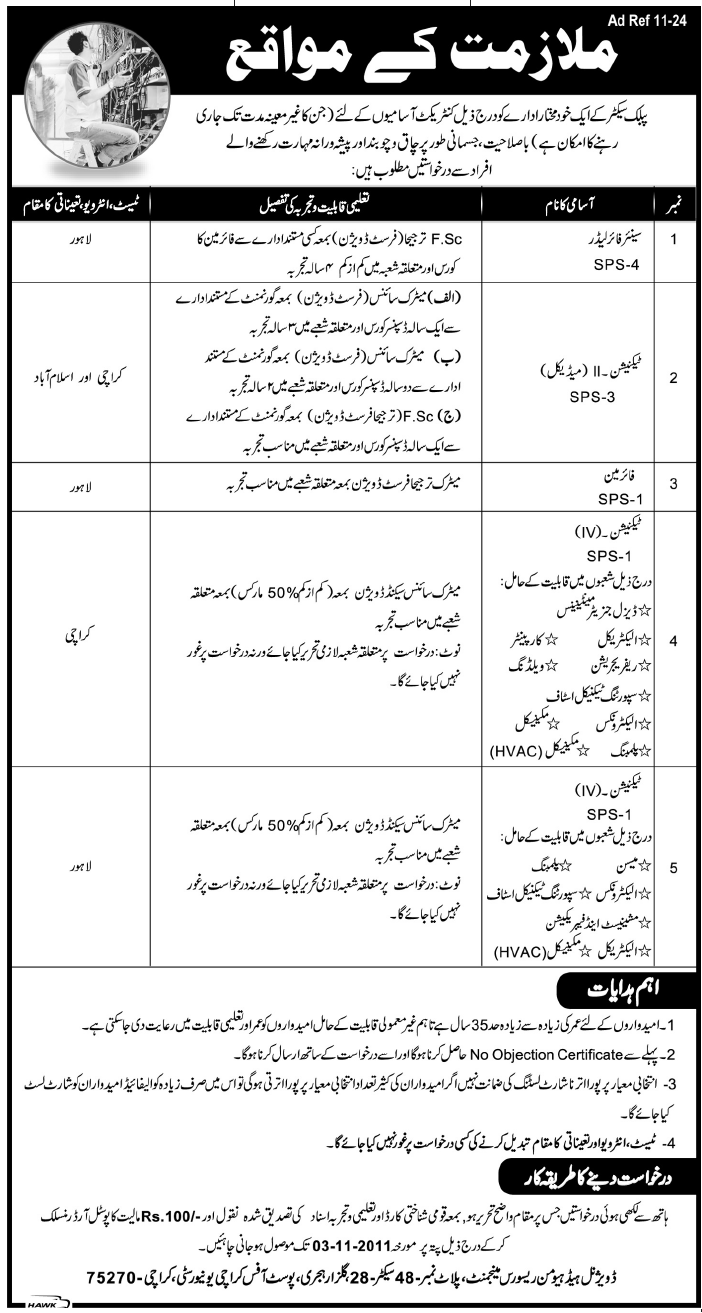 Ad Ref 11-24
ملازمت کے مواقع
پبلک سیکٹر کے ایک خودمختار ادارے کو درج ذیل کنٹریکٹ آسامیوں کے لئے (جن کا غیر معینہ مدت تک جاری
رہنے کا امکان ہے) باصلاحیت، جسمانی طور پر چاق و چوبند اور پیشہ ورانہ مہارت رکھنے والے
افراد سے درخواستیں مطلوب ہیں:
نمبر آسامی کا نام تعلیمی قابلیت و تجربہ کی تفصیل ٹیسٹ، انٹرویو، تعیناتی کا مقام
1 سینئر فائر لیڈر
SPS-4
F.Sc ترجیحا (فرسٹ ڈویژن) بمعہ کسی مستند ادارے سے فائرمین کا
کورس اور متعلقہ شعبہ میں کم از کم ۴ سالہ تجربہ
لاہور
2 ٹیکنیشن۔II (میڈیکل)
SPS-3
(الف) میٹرک سائنس (فرسٹ ڈویژن) بمعہ گورنمنٹ کے مستند ادارے
سے ایک سالہ ڈسپنسر کورس اور متعلقہ شعبے میں ۳ سالہ تجربہ
(ب) میٹرک سائنس (فرسٹ ڈویژن) بمعہ گورنمنٹ کے مستند
ادارے سے دو سالہ ڈسپنسر کورس اور متعلقہ شعبے میں ۲ سالہ تجربہ
(ج) F.Sc (ترجیحا فرسٹ ڈویژن) بمعہ گورنمنٹ کے مستند ادارے
سے ایک سالہ ڈسپنسر کورس اور متعلقہ شعبے میں مناسب تجربہ
کراچی اور اسلام آباد
3 فائرمین
SPS-1
میٹرک ترجیحا فرسٹ ڈویژن بمعہ متعلقہ شعبے میں مناسب تجربہ
لاہور
4 ٹیکنیشن۔(IV)
SPS-1
درج ذیل شعبوں میں قابلیت کے حامل:
☆ڈیزل جنریٹر مینٹیننس
☆الیکٹریکل ☆کارپینٹر
☆ریفریجریشن ☆ویلڈنگ
☆سپورٹنگ ٹیکنیکل اسٹاف
☆الیکٹرونکس ☆مکینیکل
☆پلمبنگ ☆مکینیکل (HVAC)
میٹرک سائنس سیکنڈ ڈویژن بمعہ (کم از کم 50% مارکس) بمعہ متعلقہ
شعبے میں مناسب تجربہ
نوٹ: درخواست پر متعلقہ شعبہ لازمی تحریر کیا جائے ورنہ درخواست پر غور
نہیں کیا جائے گا۔
کراچی
5 ٹیکنیشن۔(IV)
SPS-1
درج ذیل شعبوں میں قابلیت کے حامل:
☆میسن ☆پلمبنگ
☆الیکٹرونکس ☆سپورٹنگ ٹیکنیکل اسٹاف
☆مشینیسٹ اینڈ فیبریکیشن
☆الیکٹریکل ☆مکینیکل (HVAC)
میٹرک سائنس سیکنڈ ڈویژن بمعہ (کم از کم 50% مارکس) بمعہ متعلقہ
شعبے میں مناسب تجربہ
نوٹ: درخواست پر متعلقہ شعبہ لازمی تحریر کیا جائے ورنہ درخواست پر غور
نہیں کیا جائے گا۔
لاہور
اہم ہدایات
1۔ امیدواروں کے لئے عمر کی زیادہ سے زیادہ حد 35 سال ہے تاہم غیر معمولی قابلیت کے حامل امیدواروں کو عمر اور تعلیمی قابلیت میں رعایت دی جا سکتی ہے۔
2۔ پہلے سے No Objection Certificate حاصل کرنا ہوگا اور اسے درخواست کے ساتھ ارسال کرنا ہوگا۔
3- انتخابی معیار پر پورا اترنا شارٹ لسٹنگ کی ضمانت نہیں اگر امیدواران کی کثیر تعداد انتخابی معیار پر پورا اترتی ہوگی تو اس میں صرف زیادہ کوالیفائیڈ امیدواران کو شارٹ لسٹ
کیا جائے گا۔
4- ٹیسٹ، انٹرویو اور تعیناتی کا مقام تبدیل کرنے کی کسی درخواست پر غور نہیں کیا جائے گا۔
درخواست دینے کا طریقہ کار
ہاتھ سے لکھی ہوئی درخواستیں جس پر مقام واضح تحریر ہو، بمعہ قومی شناختی کارڈ اور تعلیمی و تجربہ اسناد کی تصدیق شدہ نقول اور Rs.100/- مالیت کا پوسٹل آرڈر منسلک
کر کے درج ذیل پتہ پر مورخہ 03-11-2011 تک موصول ہو جانی چاہئیں۔
ڈویژنل ہیڈ ہیومن ریسورس مینجمنٹ، پلاٹ نمبر-48 سیکٹر-28، گلزار ہجری، پوسٹ آفس کراچی یونیورسٹی، کراچی-75270
HAWK